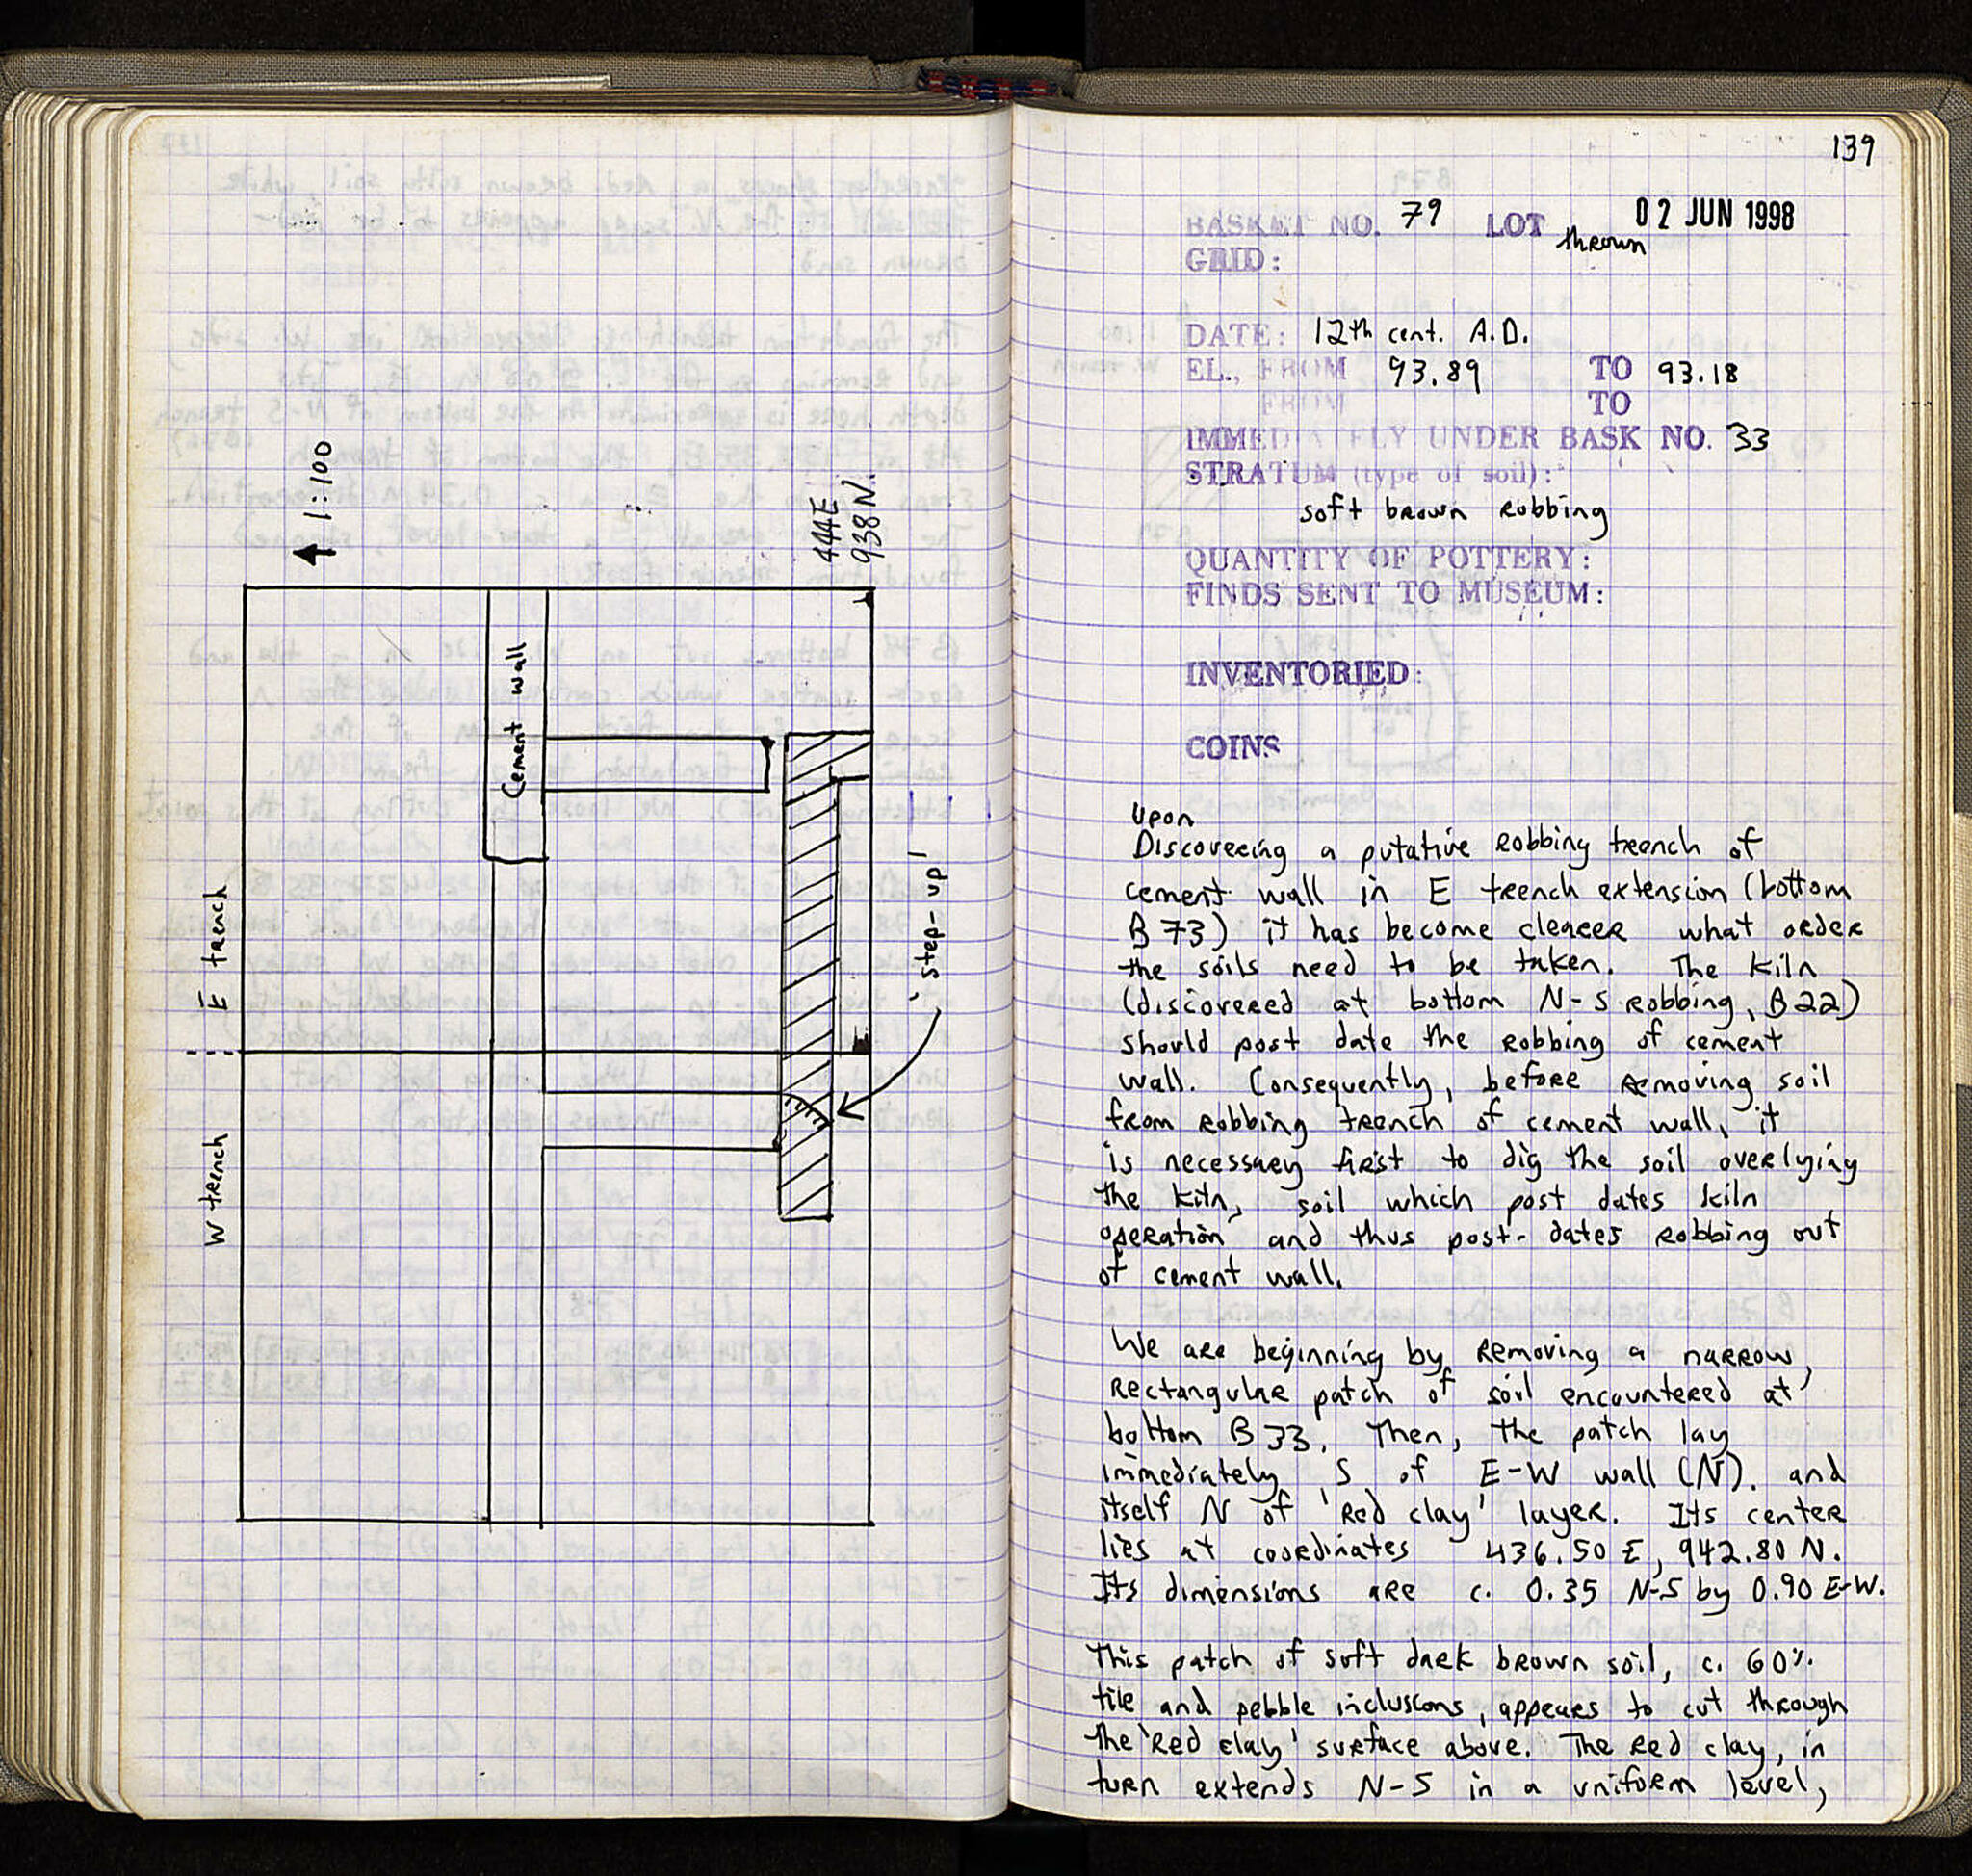 1:100
444E
938 N.
Cement wall
E trench
W trench
'step-up'
139
BASKET NO. 79 LOT 02 JUN 1998
thrown
GRID:
DATE: 12th cent. A.D.
EL., FROM 93.89 TO 93.18
FROM TO
IMMEDIATELY UNDER BASK NO. 33
STRATUM (type of soil):
soft brown robbing
QUANTITY OF POTTERY:
FINDS SENT TO MUSEUM:
INVENTORIED:
COINS
Upon
Discovering a putative robbing trench of
cement wall in E trench extension (bottom
B 73) it has become clearer what order
the soils need to be taken. The kiln
(discovered at bottom N-S robbing, B 22)
should post date the robbing of cement
wall. Consequently, before removing soil
from robbing trench of cement wall, it
is necessary first to dig the soil overlying
the kiln, soil which post dates kiln
operation and thus post-dates robbing out
of cement wall.
We are beginning by removing a narrow,
rectangular patch of soil encountered at
bottom B 33. Then, the patch lay
immediately S of E-W wall (N). and
itself N of 'red clay' layer. Its center
lies at coordinates 436.50 E, 942.80 N.
Its dimensions are c. 0.35 N-S by 0.90 E-W.
This patch of soft dark brown soil, c. 60%
tile and pebble inclusions, appears to cut through
the 'red clay' surface above. The red clay, in
turn extends N-S in a uniform level,